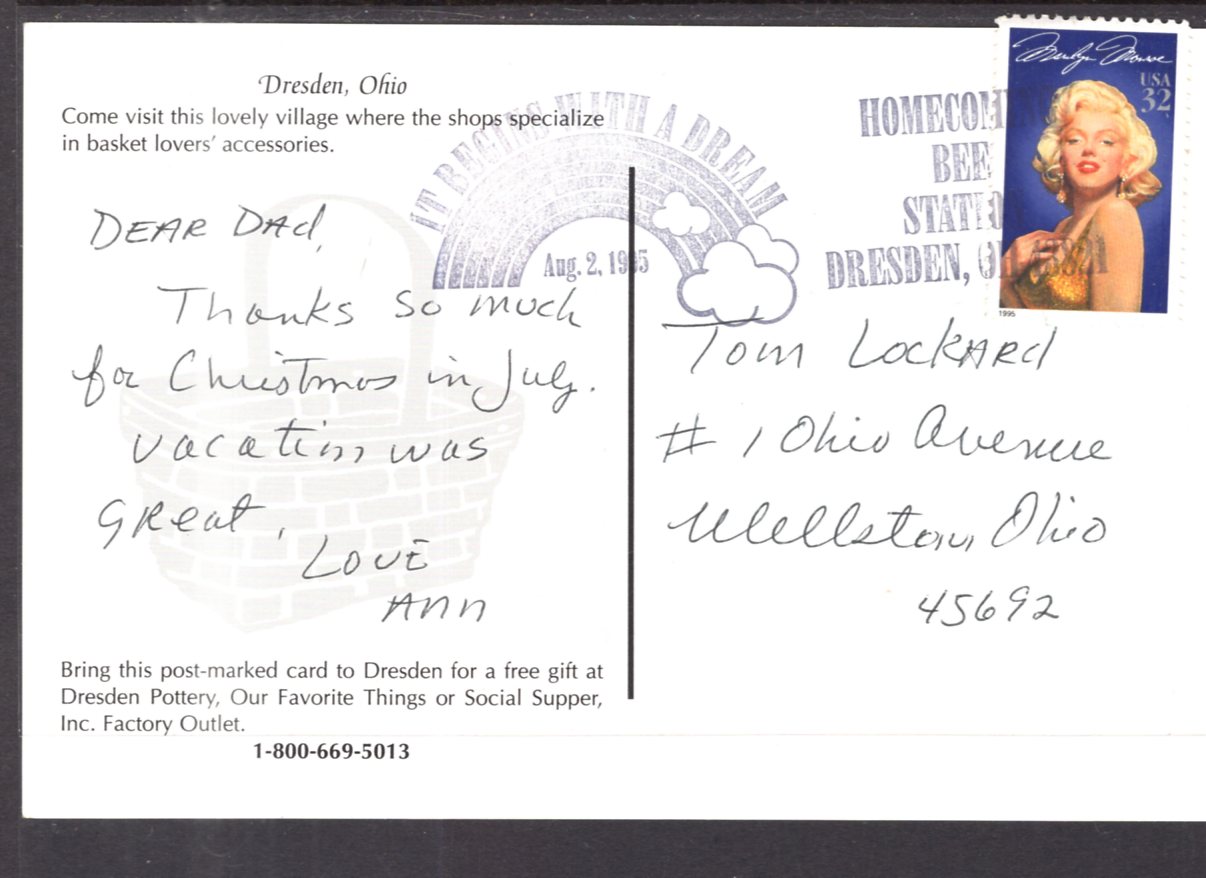 Dresden, Ohio
Come visit this lovely village where the shops specialize
in basket lovers' accessories.
DEAR DAd,
Thanks so much
for Christmas in July.
vacation was
GReat,
LOVE
Ann
Bring this post-marked card to Dresden for a free gift at
Dresden Pottery, Our Favorite Things or Social Supper,
Inc. Factory Outlet.
1-800-669-5013
IT BEGINS WITH A DREAM
Aug. 2, 1995
HOMECOMING
BEE
STATION
DRESDEN, OH 43821
Marilyn Monroe
USA
32
1995
Tom LockARd
# 1 Ohio Avenue
Wellston, Ohio
45692